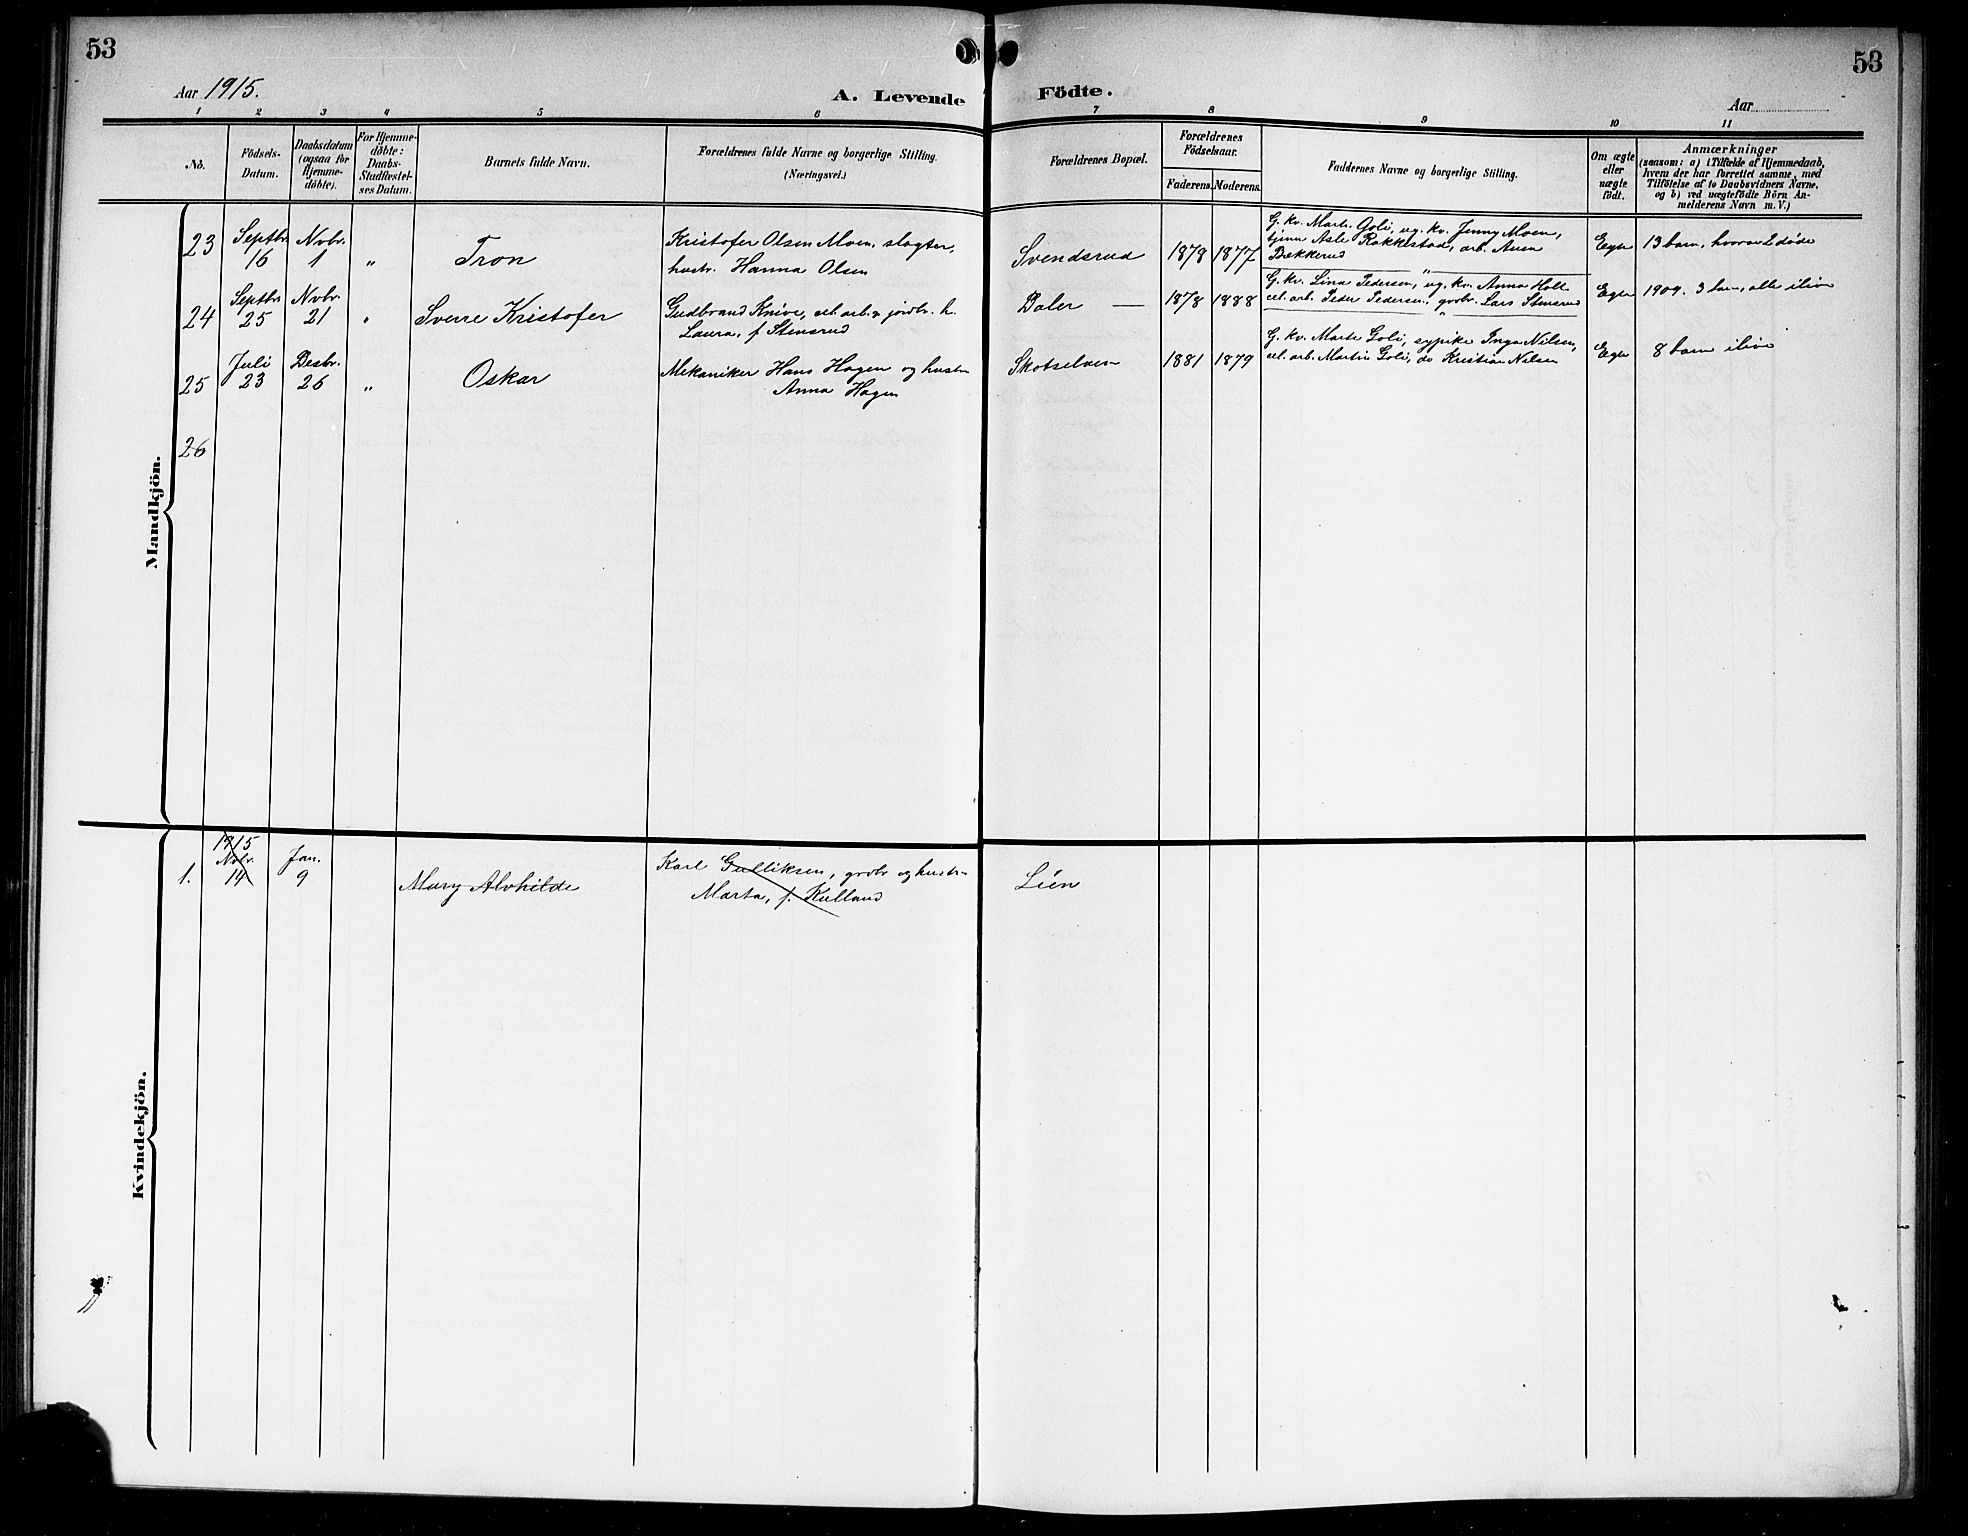 53
53
Aar 1915.
A. Levende Födte.
Aar
1 2 3 4 5 6 7 8 9 10 11
No.
Födsels-
Datum.
Daabsdatum
(ogsaa for
Hjemme-
döbte).
For Hjemme-
döbte:
Daabs-
Stadfæstel-
ses Datum.
Barnets fulde Navn.
Forældrenes fulde Navne og borgerlige Stilling.
(Næringsvei.)
Forældrenes Bopæl.
Forældrenes
Födselsaar.
Faderens. Moderens.
Faddernes Navne og borgerlige Stilling.
Om ægte
eller
uægte
födt.
Anmærkninger
(saasom: a) i Tilfælde af Hjemmedaab,
hvem der har forrettet samme, med
Tilföielse af to Daabsvidners Navne,
og b) ved uægtefödte Börn An-
melderens Navn m. V.)
Mandkjön.
23
Septbr.
16
Novbr.
1
"
Tron
Kristofer Olsen Moen, slagter,
hustr. Hanna Olsen
Svendsrud
1878 1877
G. kv. Marte Goli, ug. kv. Jenny Moen,
tjener Asle Rakkestad, arb. Anen
Bækkerud
Egte
13 barn, hvorav 2 døde
24
Septbr.
25
Novbr.
21
"
Sverre Kristofer
Gudbrand Knive, cel. arb. og jordbr. h.
Laura, f. Stensrud
Daler
1878 1888
G. kv. Lina Pedersen, ug. kv. Anna Holt
cel. arb. Peder Pedersen, grdbr. Lars Stensrud
Egte
1909. 3 barn, alle ilive
25
Juli
23
Desbr.
26
"
Oskar
Mekaniker Hans Hagen og hustru
Anna Hagen
Skotselven
1881 1879
G. kv. Marte Goli, sypike Inga Nilsen,
cel. arb. Martin Goli, do Kristian Nilsen
Egte
8 barn ilive
26
Kvindekjön.
1.
1915
Novbr.
14
Jan.
9
Mary Alvhilde
Karl Gulliksen, grdbr og hustru
Marta, f. Kulland
Lien